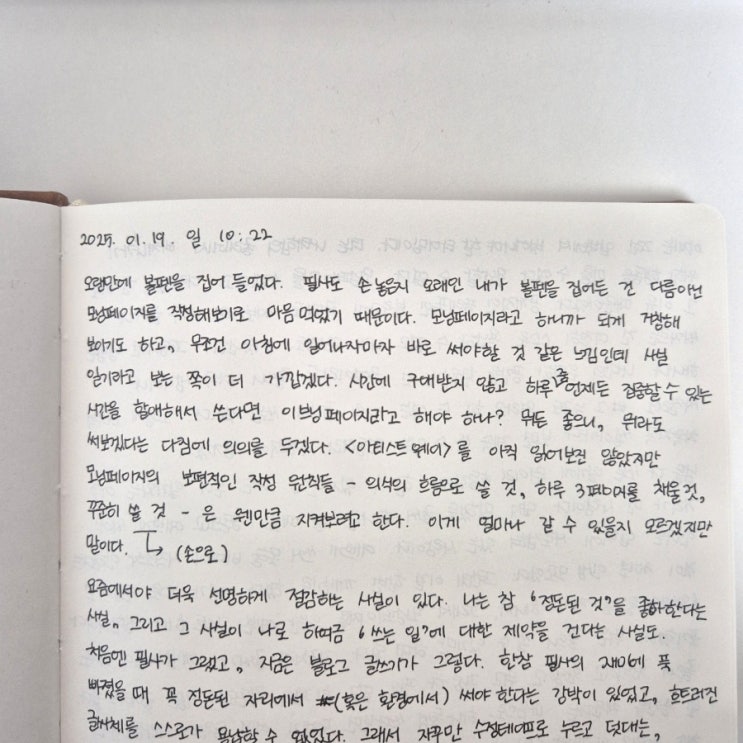 2025. 01. 19. 일 10:22
오랜만에 볼펜을 집어 들었다. 필사도 손 놓은지 오래인 내가 볼펜을 집어든 건 다름아닌
모닝페이지를 작성해보기로 마음 먹었기 때문이다. 모닝페이지라고 하니까 되게 거창해
보이기도 하고, 무조건 아침에 일어나자마자 바로 써야할 것 같은 느낌인데 사실
일기라고 보는 쪽이 더 가깝겠다. 시간에 구애받지 않고 하루 중 언제든 집중할 수 있는
시간을 할애해서 쓴다면 이브닝페이지라고 해야 하나? 뭐든 좋으니, 뭐라도
써보겠다는 다짐에 의의를 두겠다. <아티스트 웨이>를 아직 읽어보진 않았지만
모닝페이지의 보편적인 작성 원칙들 - 의식의 흐름으로 쓸 것, 하루 3페이지를 채울것,
꾸준히 쓸 것 - 은 웬만큼 지켜보려고 한다. 이게 얼마나 갈 수 있을지 모르겠지만
말이다. ↳ (손으로)
요즘에서야 더욱 선명하게 절감하는 사실이 있다. 나는 참 "정돈된 것"을 좋아한다는
사실. 그리고 그 사실이 나로 하여금 '쓰는 일'에 대한 제약을 건다는 사실도.
처음엔 필사가 그랬고, 지금은 블로그 글쓰기가 그렇다. 한참 필사의 재미에 푹
빠졌을 때 꼭 정돈된 자리에서 (혹은 환경에서) 써야 한다는 강박이 있었고, 흐트러진
글씨체를 스스로가 용납할 수 없었다. 그래서 자꾸만 수정테이프로 누르고 덧대는,